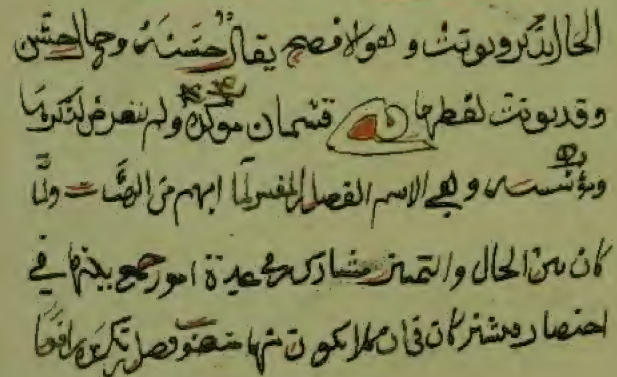 الحال يذكر ويونث وهو الافصح يقال حال حسنة وحال حسن
وقد يونث لفظها قسمان موكدة ولم نتعرض لذكرها
وموسسه وهي الاسم الفضل المفسر لما ابهم من الهيات ولما
كان بين الحال والتميز مشاركه في عدة امور جمع بينهما في
اختصار فيشتركان في ان كلا يكون منها